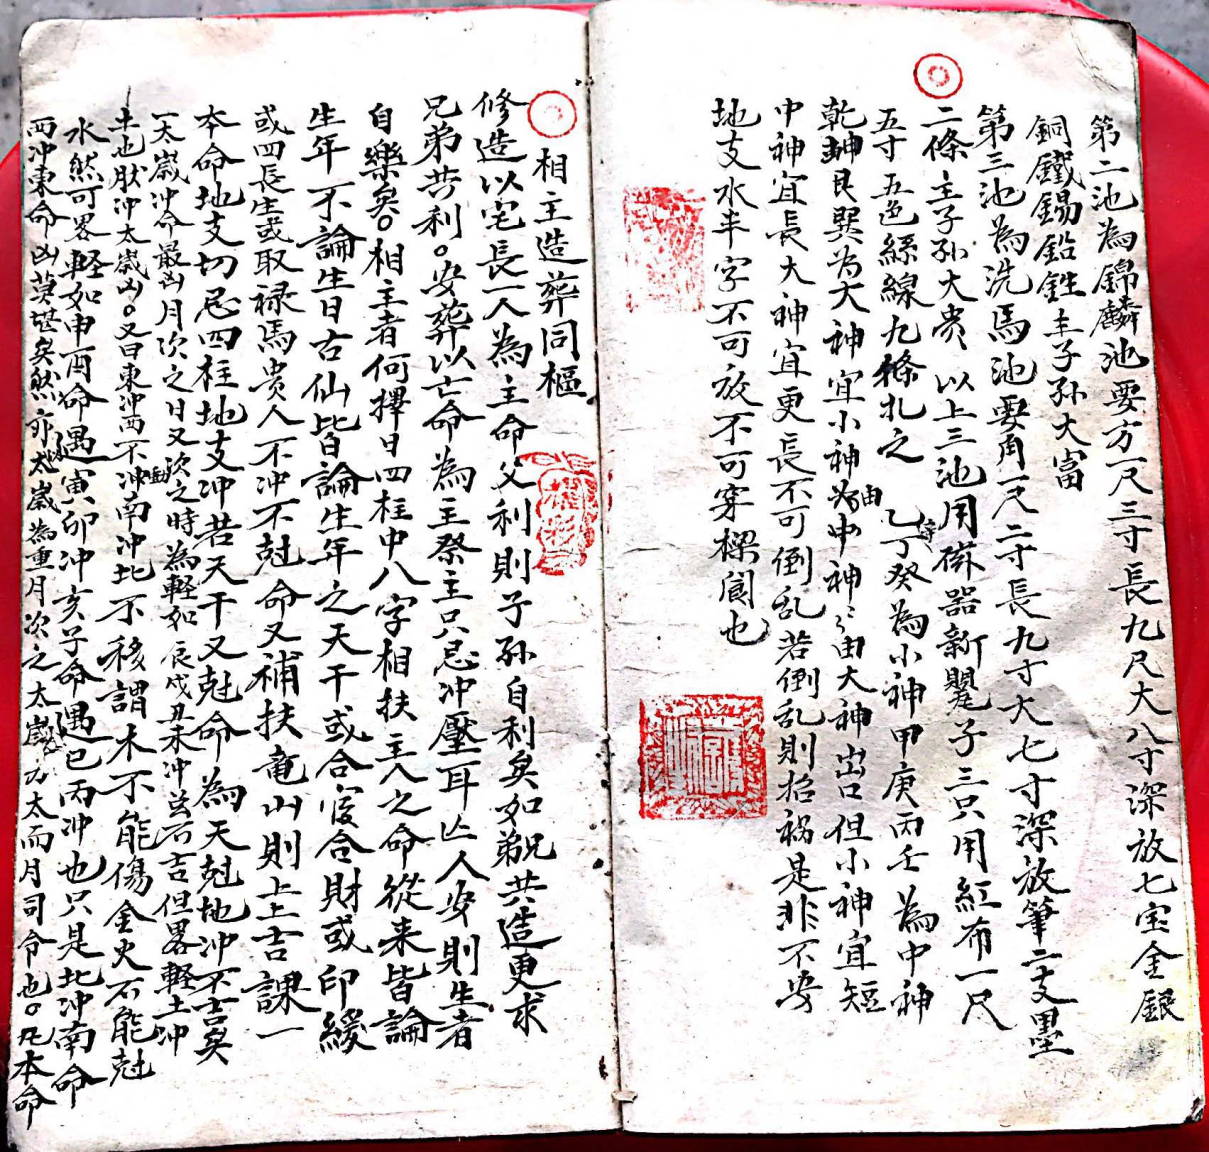 第二池為錦麟池要方一尺三寸長九尺大八寸深放七宝金銀
銅鐵錫鉛鉎主子孫大富
第三池為洗馬池要角一尺二寸長九寸大七寸深放筆二支墨
二條主子孫大贵以上三池用磁器新甖子三只用紅布一尺
五寸五色絲線九條扎之
乙丁癸為小神甲庚丙壬為中神
乾坤艮巽为大神宜小神由中神〻由大神出口但小神宜短
中神宜長大神宜更長不可倒乱若倒乱則招祸是非不安
地支水半字不可放不可穿樑閬也
相主造葬同樞
修造以宅長一人為主命父利則子孫自利矣如弟兄共造更求
兄弟共利。安葬以亡命為主祭主只忌冲壓耳亡人安則生者
自樂矣。相主者何擇日四柱中八字相扶主人之命從来皆論
生年不論生日古仙皆論生年之天干或合官合財或印綬
或四長生或取禄馬贵人不冲不尅命又補扶竜山則上上吉課一
本命地支切忌四柱地支冲若天干又尅命為天尅地冲不吉矣
一太歲冲命最凶月次之日又次之時為輕如辰戌丑未冲為不吉但畧軽土冲
土也肰冲太歲凶。又曰東冲西不動南冲北不移謂木不能傷金火不能尅
水然可畧軽如申酉命遇寅卯冲亥子命遇巳丙冲也只是北冲南命
西冲東命凶莫堪矣然亦太歲為重月次之太歲九太而月司令也。凡本命